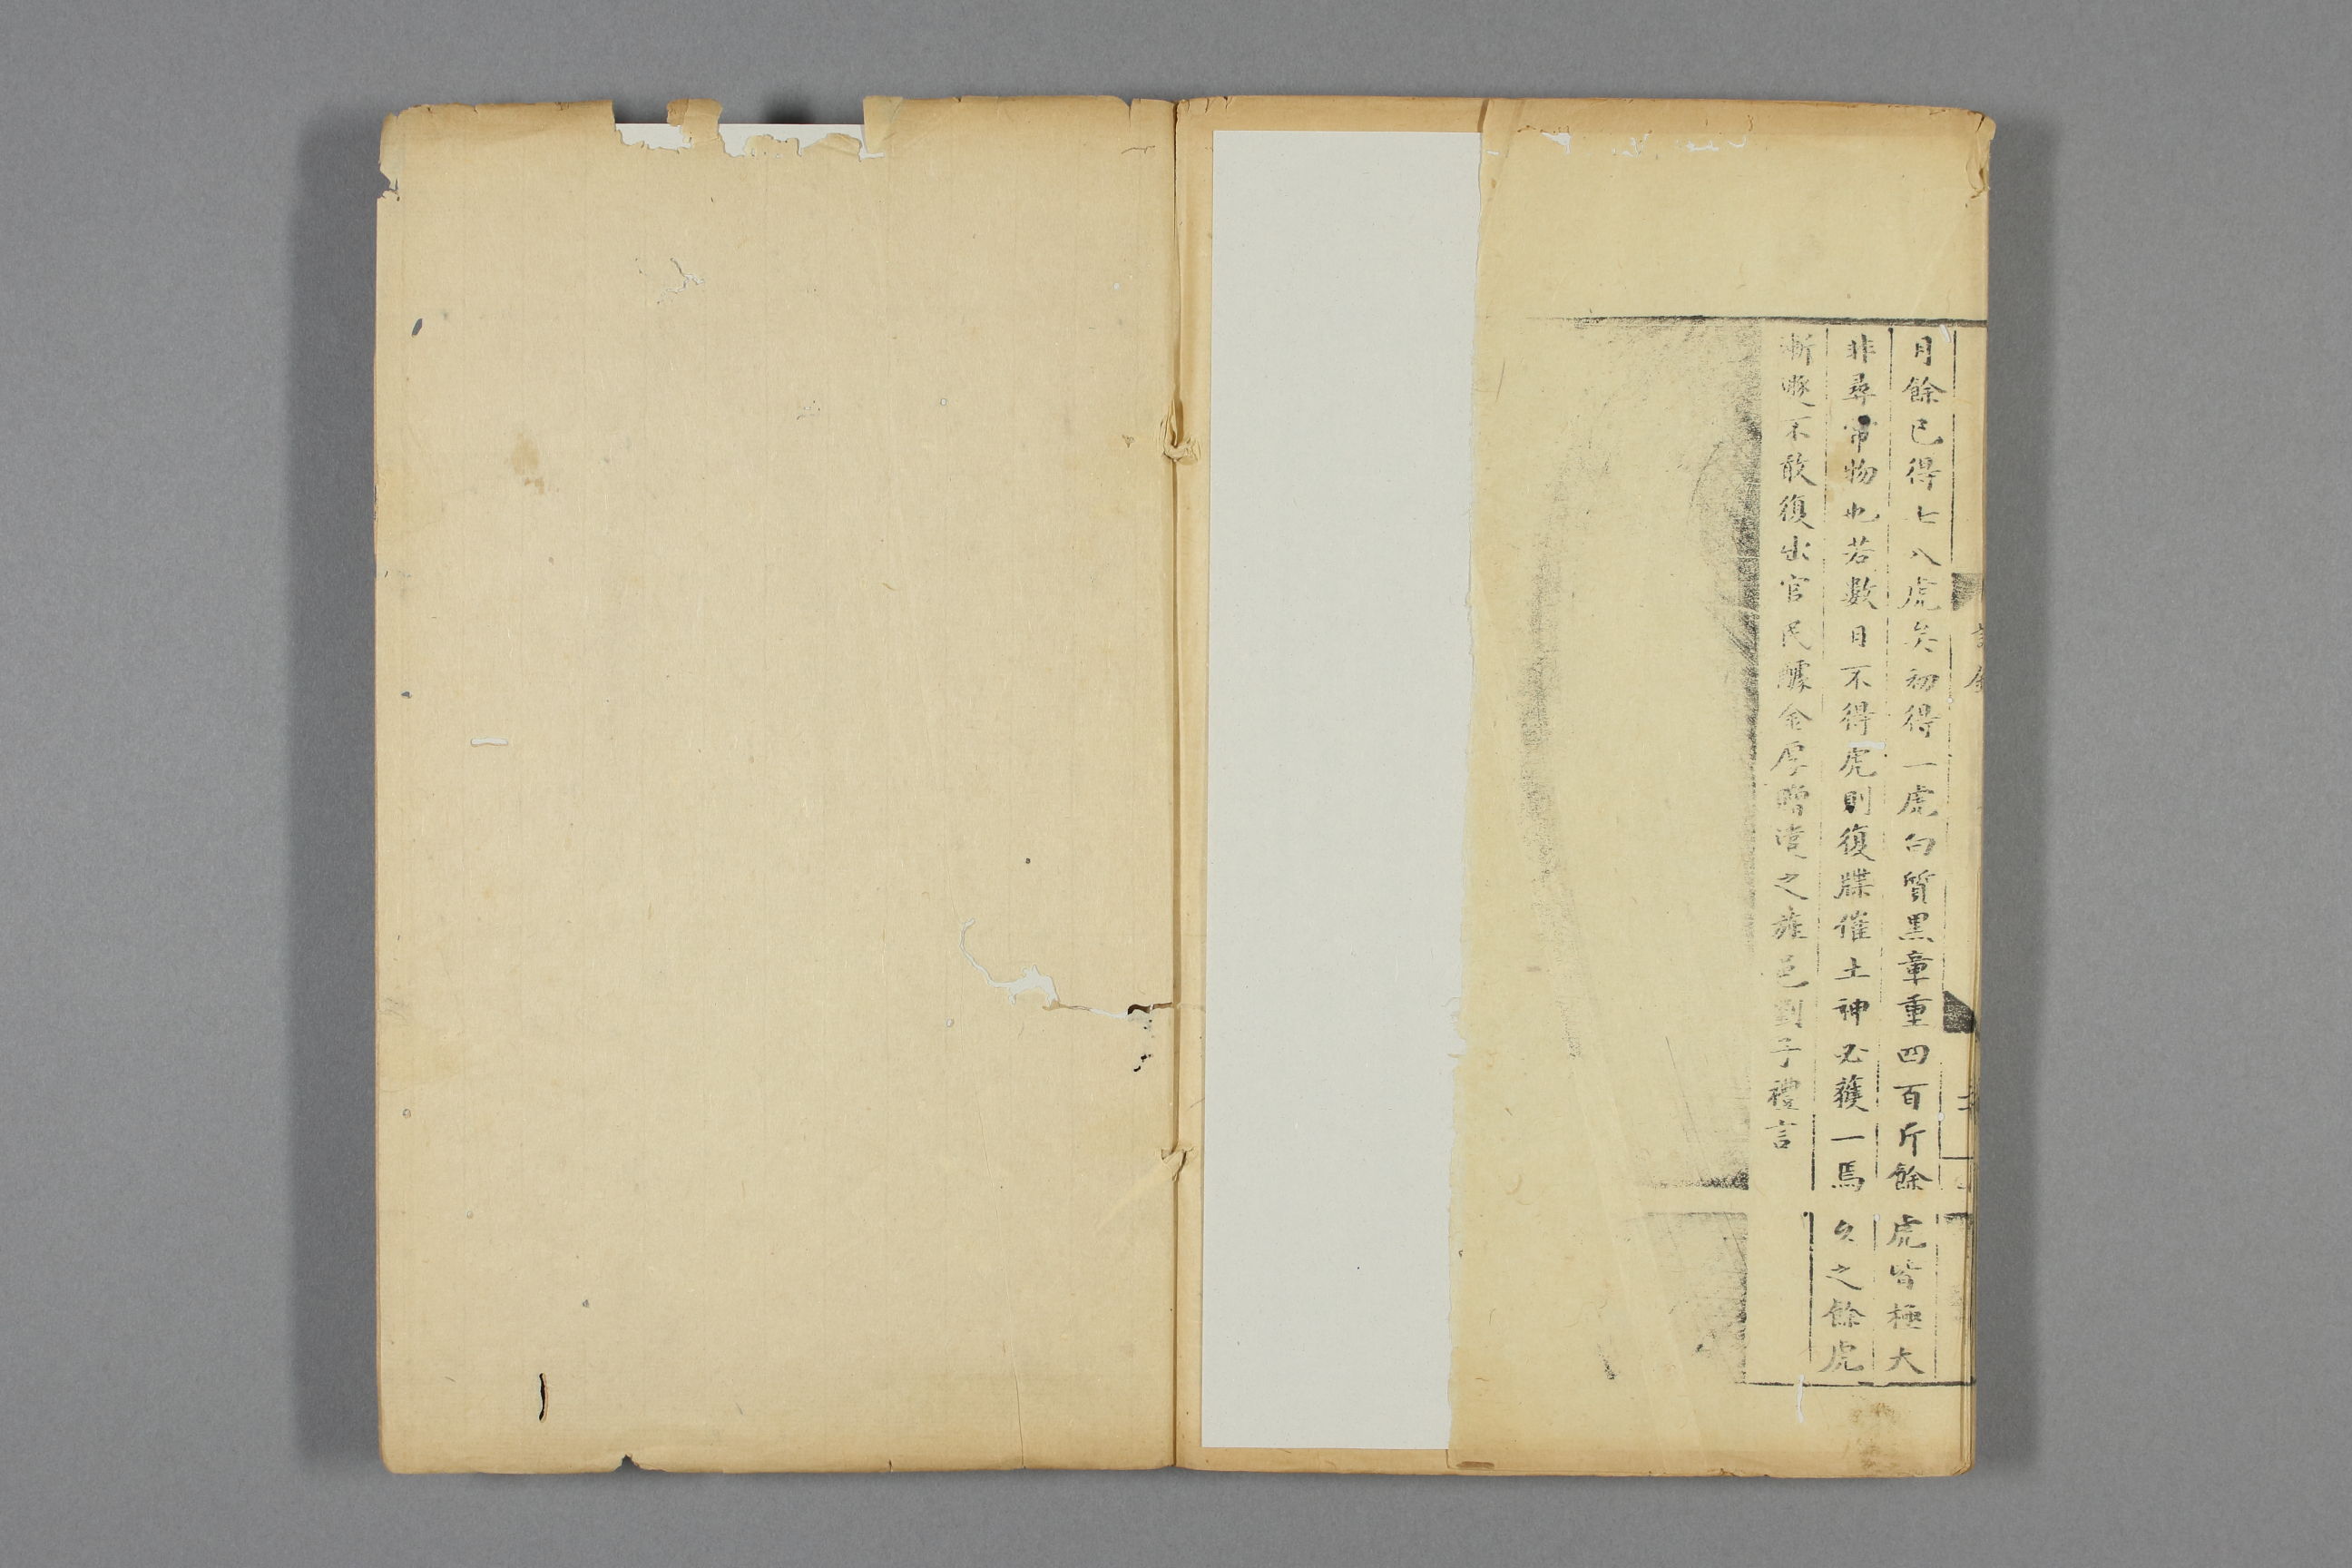 月餘已得七八虎矣初得一虎白質黑章重四百斤餘虎皆極大
非尋常物也若數日不得虎則復牒催土神必獲一焉久之餘虎
漸 不敢復出官民醵金厚贈遣之 邑劉子禮言